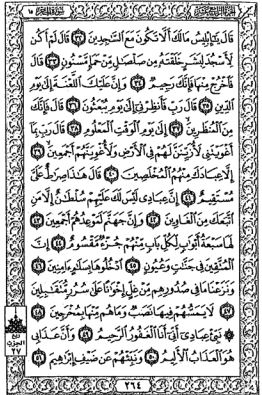 قَالَ يَٰٓإِبْلِيسُ مَالَكَ أَلَّا تَكُونَ مَعَ ٱلسَّٰجِدِينَ ٣٢ قَالَ لَمْ أَكُن
لِّأَسْجُدَ لِبَشَرٍ خَلَقْتَهُۥ مِن صَلْصَٰلٍ مِّنْ حَمَإٍ مَّسْنُونٍ ٣٣ قَالَ
فَٱخْرُجْ مِنْهَا فَإِنَّكَ رَجِيمٌ ٣٤ وَإِنَّ عَلَيْكَ ٱللَّعْنَةَ إِلَىٰ يَوْمِ
ٱلدِّينِ ٣٥ قَالَ رَبِّ فَأَنظِرْنِىٓ إِلَىٰ يَوْمِ يُبْعَثُونَ ٣٦ قَالَ فَإِنَّكَ
مِنَ ٱلْمُنظَرِينَ ٣٧ إِلَىٰ يَوْمِ ٱلْوَقْتِ ٱلْمَعْلُومِ ٣٨ قَالَ رَبِّ بِمَآ
أَغْوَيْتَنِى لَأُزَيِّنَنَّ لَهُمْ فِى ٱلْأَرْضِ وَلَأُغْوِيَنَّهُمْ أَجْمَعِينَ ٣٩
إِلَّا عِبَادَكَ مِنْهُمُ ٱلْمُخْلَصِينَ ٤٠ قَالَ هَٰذَا صِرَٰطٌ عَلَىَّ
مُسْتَقِيمٌ ٤١ إِنَّ عِبَادِى لَيْسَ لَكَ عَلَيْهِمْ سُلْطَٰنٌ إِلَّا مَنِ
ٱتَّبَعَكَ مِنَ ٱلْغَاوِينَ ٤٢ وَإِنَّ جَهَنَّمَ لَمَوْعِدُهُمْ أَجْمَعِينَ ٤٣
لَهَا سَبْعَةُ أَبْوَٰبٍ لِّكُلِّ بَابٍ مِّنْهُمْ جُزْءٌ مَّقْسُومٌ ٤٤ إِنَّ
ٱلْمُتَّقِينَ فِى جَنَّٰتٍ وَعُيُونٍ ٤٥ ٱدْخُلُوهَا بِسَلَٰمٍ ءَامِنِينَ ٤٦
وَنَزَعْنَا مَا فِى صُدُورِهِم مِّنْ غِلٍّ إِخْوَٰنًا عَلَىٰ سُرُرٍ مُّتَقَٰبِلِينَ
٤٧ لَا يَمَسُّهُمْ فِيهَا نَصَبٌ وَمَا هُم مِّنْهَا بِمُخْرَجِينَ ٤٨
نَبِّئْ عِبَادِىٓ أَنِّىٓ أَنَا ٱلْغَفُورُ ٱلرَّحِيمُ ٤٩ وَأَنَّ عَذَابِى
هُوَ ٱلْعَذَابُ ٱلْأَلِيمُ ٥٠ وَنَبِّئْهُمْ عَن ضَيْفِ إِبْرَٰهِيمَ ٥١
ربع
الحزب
٢٧
٢٦٤